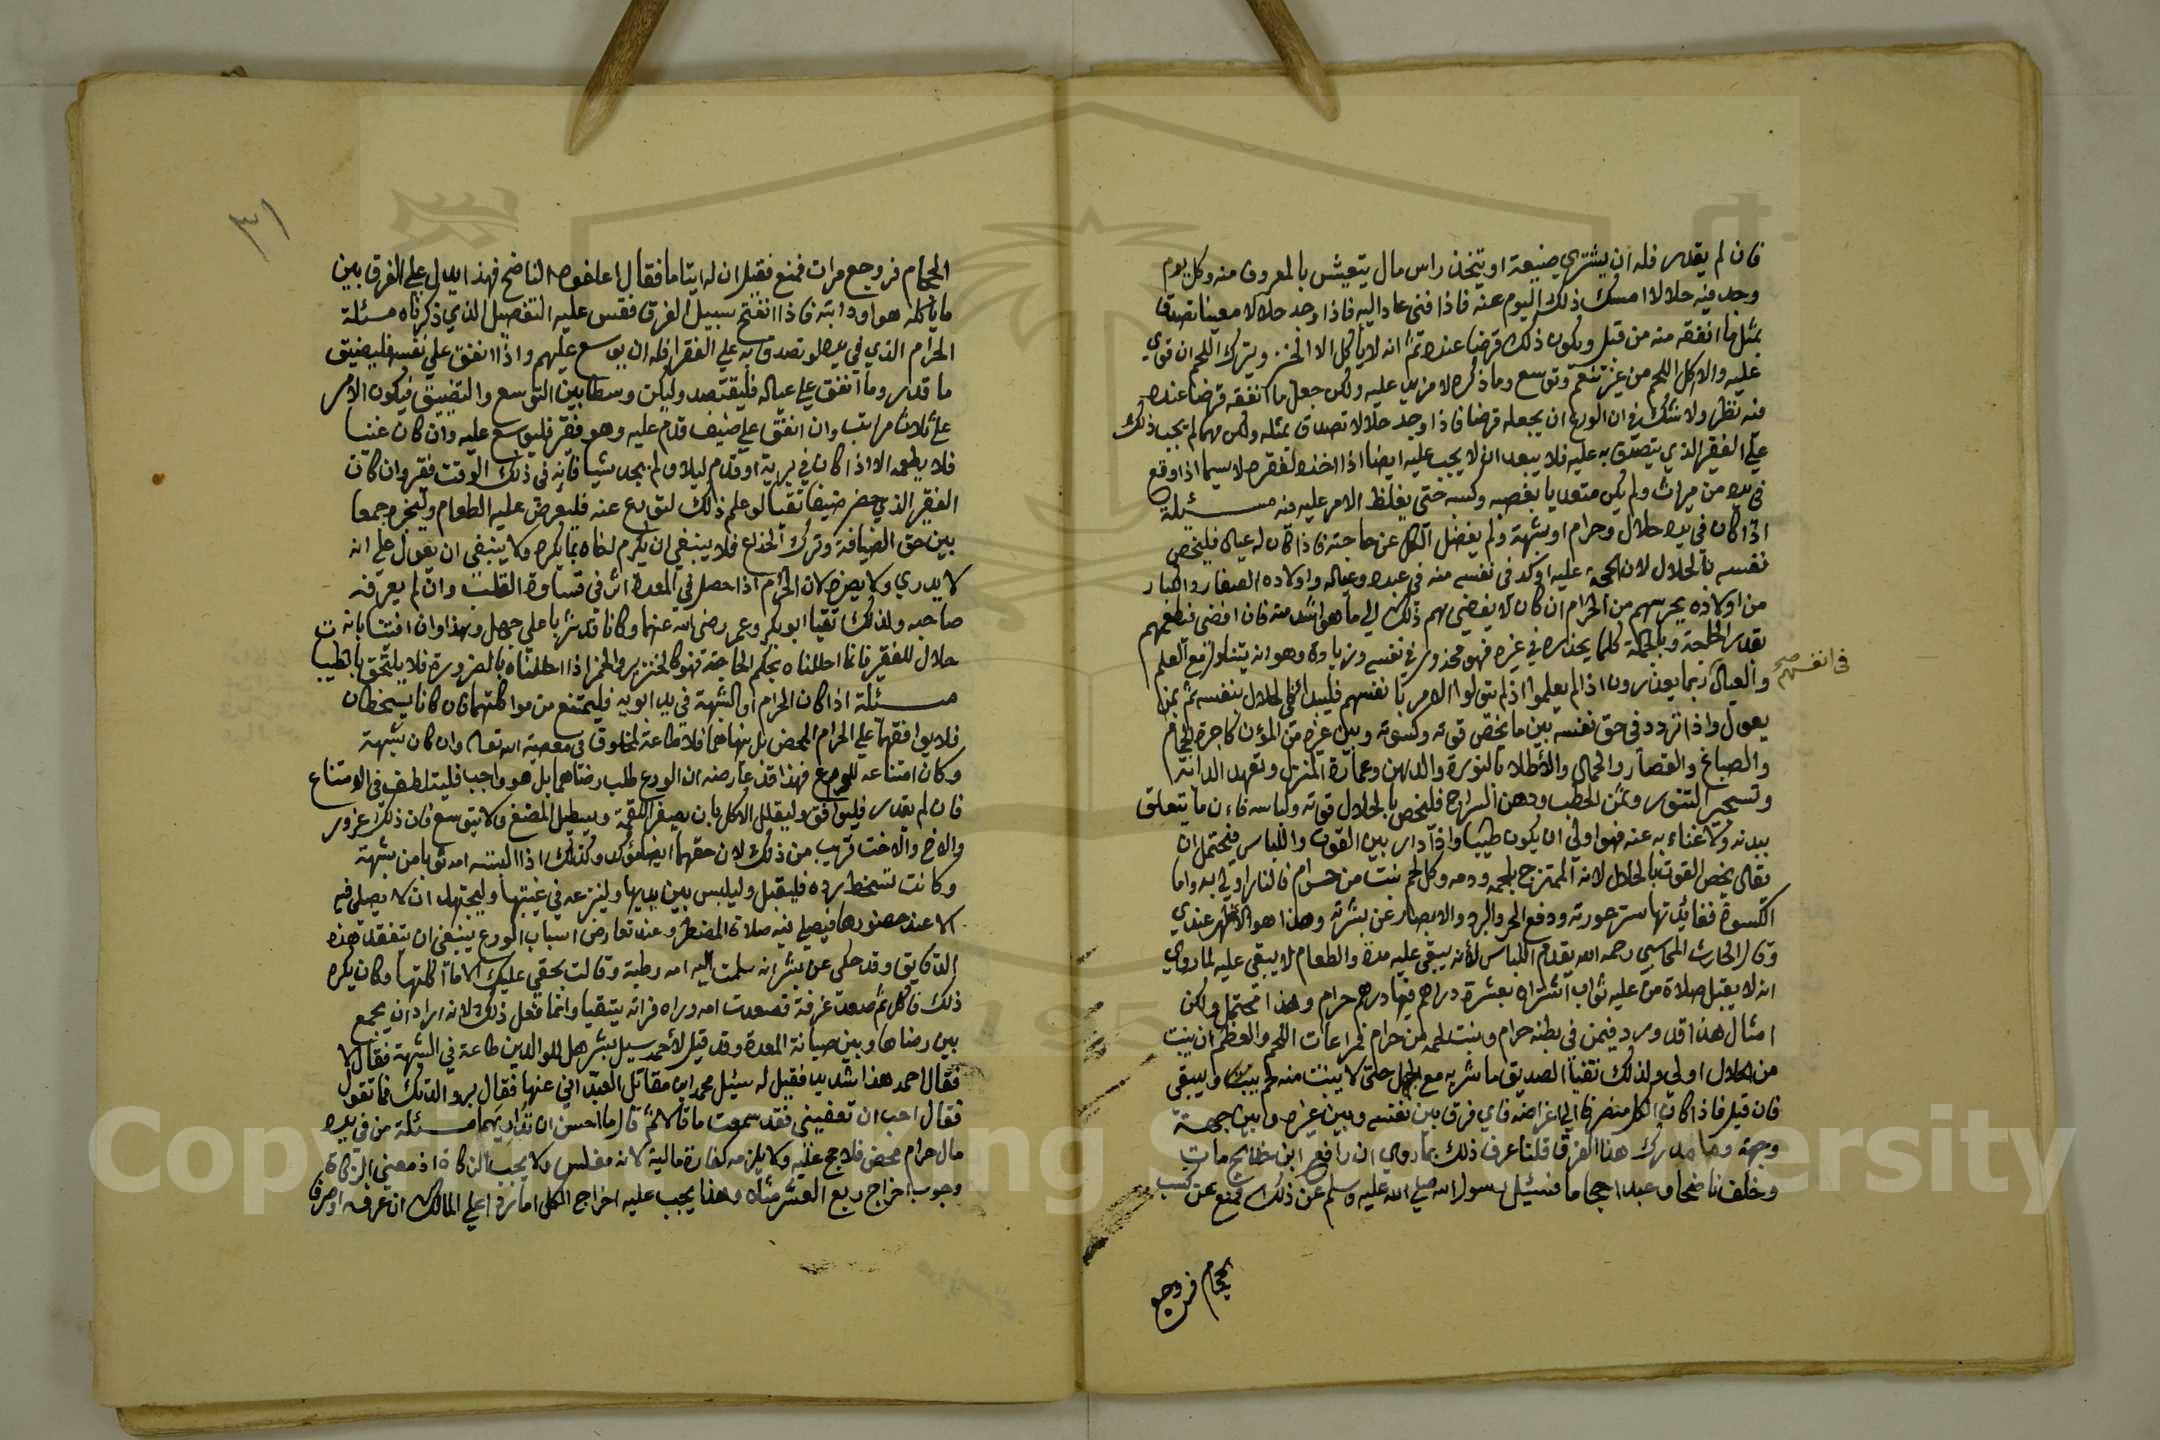 فان لم يقدر فله ان يشتري ضيعة او يتخذ راس مال يتعيش بالمعروف منه وكل يوم
وجد فيه حلالا امسك ذلك اليوم عنه فاذا فني عاد اليه فاذا وجد حلالا معينا تصدق
بمثل ما انفقه منه من قبل ويكون ذلك قرضا عنده ثم انه لا ياكل الا الخبز ويترك اللحم ان قوي
عليه والا اكل اللحم من غير تنعم وتوسع وما ذكره لا مزيد عليه ولكن جعل ما انفقه قرضا عنده
فيه نظر ولا شك في ان الورع ان يجعله قرضا فاذا وجد حلالا تصدق بمثله ولكن مهما لم يجب ذلك
علي الفقير الذي يتصدق به عليه فلا يبعد ان لا يجب عليه ايضا اذا اخذه لفقره لا سيما اذا وقع
في يده من ميراث ولم يكن متعديا بغصبه وكسبه حتى يغلظ الامر عليه فيه مسئلة
اذا كان في يده حلال وحرام او شبهة ولم يفضل الكل عن حاجته فاذا كان له عيال فليخص
نفسه بالحلال لان الحجة عليه اوكد في نفسه منه في عبده وعياله واولاده الصغار والكبار
من اولاده يحرسهم من الحرام ان كان لا يفضي بهم ذلك الي ما هو اشد منه فان افضي فيطعمهم
بقدر الحاجة وبالجملة كلما يحذره في غيره فهو محذور في نفسه وزيادة وهو انه يتناول مع العلم
والعيال ربما يعذرون اذا لم يعلموا اذ لم يتولوا الامر بانفسهم فليبدا بالحلال بنفسه ثم بمن
في انفسهم صح
يعول واذا تردد في حق نفسه بين ما يخص قوته وكسوته وبين غيره من المؤن كاجرة الحجام
والصباغ والقصار والحمال والاطلاء بالنورة والدهن وعمارة المنزل وتعهد الدابة
وتسجير التنور وثمن الحطب ودهن السراج فليخص بالحلال قوته ولباسه فان ما يتعلق
ببدنه ولا غناء به عنه فهو اولى ان يكون طيبا واذا دار بين القوت واللباس فيحتمل ان
يقال يخص القوت بالحلال لانه الممتزج بلحمه ودمه وكل لحم نبت من حرام فالنار اولي به واما
الكسوة ففائدتها ستر عورته ودفع الحر والبرد والابصار عن بشرته وهذا هو الاظهر عندي
وقال الحارث المحاسبي رحمه الله يقدم اللباس لانه يبقي عليه مدة والطعام لا يبقي عليه لما روي
انه لا يقبل صلاة من عليه ثواب اشتراه بعشرة دراهم فيها درهم حرام وهذا محتمل ولكن
امثال هذا قد ورد فيمن في بطنه حرام ونبت لحمه من حرام فمراعات اللحم والعظم ان ينبت
من الحلال اولى ولذلك تقيا الصديق ما شربه مع الجهل حتى لا ينبت منه لحم يثبت ويبقى
فان قيل فاذا كان الكل منصرفا الى اغراضه فاي فرق بين نفسه وبين غيره وبين جهة
وجهة وما مدرك هذا الفرق قلنا عرف ذلك بما روي ان رافع ابن خديج مات
وخلف ناضحا وعبدا حجاما فسئل رسول الله صلي الله عليه وسلم عن ذلك فمنع عن كسب
الحجام فروجع
٣١
الحجام فروجع مرات فمنع فقيل ان له ايتاما فقال اعلفوه الناضح فهذا يدل علي الفرق بين
ما ياكله هو او دابته فاذا انفتح سبيل الفرق فقس عليه التفصيل الذي ذكرناه مسئلة
الحرام الذي في يده لو تصدق به علي الفقرا فله ان يوسع عليهم واذا انفق علي نفسه فليضيق
ما قدر وما انفق علي عياله فليقتصد وليكن وسطا بين التوسع والتضييق فيكون الامر
على ثلاث مراتب وان انفق علي ضيف قدم عليه وهو فقير فليوسع عليه وان كان غنيا
فلا يطعمه الا اذا كان في برية او قدم ليلا ولم يجد شيا فانه في ذلك الوقت فقير وان كان
الفقير الذي حضر ضيفا تقيا لو علم ذلك لتورع عنه فليعرض عليه الطعام وليخبره جمعا
بين حق الضيافة وترك الخداع فلا ينبغي ان يكرم اخاه بما يكره ولا ينبغي ان يعول على انه
لا يدري ولا يضره لان الحرام اذا حصل في المعدة اثر في قساوة القلب وان لم يعرفه
صاحبه ولذلك تقيا ابو بكر وعمر رضي الله عنهما وكانا قد شربا على جهل وهذا وان افتينا بانه
حلال للفقير فانما احللناه بحكم الحاجة فهو كالخنزير والخمر اذا احللناه بالضرورة فلا يلتحق بالطيبات
مسئلة اذا كان الحرام او الشبهة في يد ابويه فليمتنع من مواكلتهما فان كانا يسخطان
فلا يوافقهما علي الحرام المحض بل ينهاهما فلا طاعة لمخلوق في معصية الله تعالى وان كان شبهة
وكان امتناعه للورع فهذا قد عارضه ان الورع طلب رضاهما بل هو واجب فليتلطف في الامتناع
فان لم يقدر فليوافق وليقلل الاكل بان يصغر اللقمة ويطيل المضغ ولا يتوسع فان ذلك غرور
والاخ والاخت قريب من ذلك لان حقهما ايضا مؤكد وكذلك اذا البسته امه ثوبا من شبهة
وكانت تسخط برده فليقبل وليلبس بين يديها ولينزعه في غيبتها وليجتهد ان لا يصلي فيه
الا عند حضورها فيصلي فيه صلاة المضطر وعند تعارض اسباب الورع ينبغي ان يتفقد هذه
الدقايق وقد حكي عن بشر انه سلمت اليه امه رطبة وقالت بحقي عليك الا ما اكلتها وكان يكره
ذلك فاكل ثم صعد غرفة فصعدت امه وراه فراته يتقيا وانما فعل ذلك لانه اراد ان يجمع
بين رضاها وبين صيانة المعدة وقد قيل لاحمد سيل بشر هل للوالدين طاعة في الشبهة فقال لا
فقال احمد هذا شديد فقيل له سئيل محمد ابن مقاتل العباداني عنها فقال بر والديك فما تقول
فقال احب ان تعفيني فقد سمعت ما قالا ثم قال ما احسن ان تداريهما مسئلة من في يده
مال حرام محض فلا حج عليه ولا يلزمه كفارة مالية لانه مفلس ولا يجب الزكاة اذ معنى الزكاة
وجوب اخراج ربع العشر مثلا وهذا يجب عليه اخراج الكل اما ردا علي المالك ان عرفه او صرفا